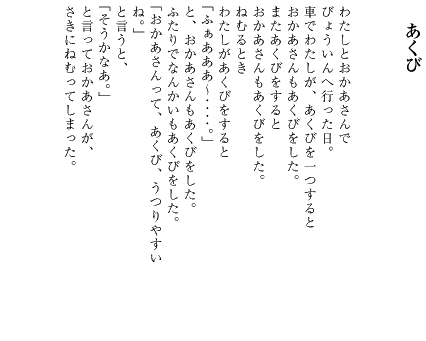 あくび
わたしとおかあさんで
びょういんへ行った日。
車でわたしが、あくびを一つすると
おかあさんもあくびをした。
またあくびをすると
おかあさんもあくびをした。
ねむるとき
わたしがあくびをすると
「ふぁあああ～・・・・。」
と、おかあさんもあくびをした。
ふたりでなんかいもあくびをした。
「おかあさんって、あくび、うつりやすい
ね。」
と言うと、
「そうかなあ。」
と言っておかあさんが、
さきにねむってしまった。